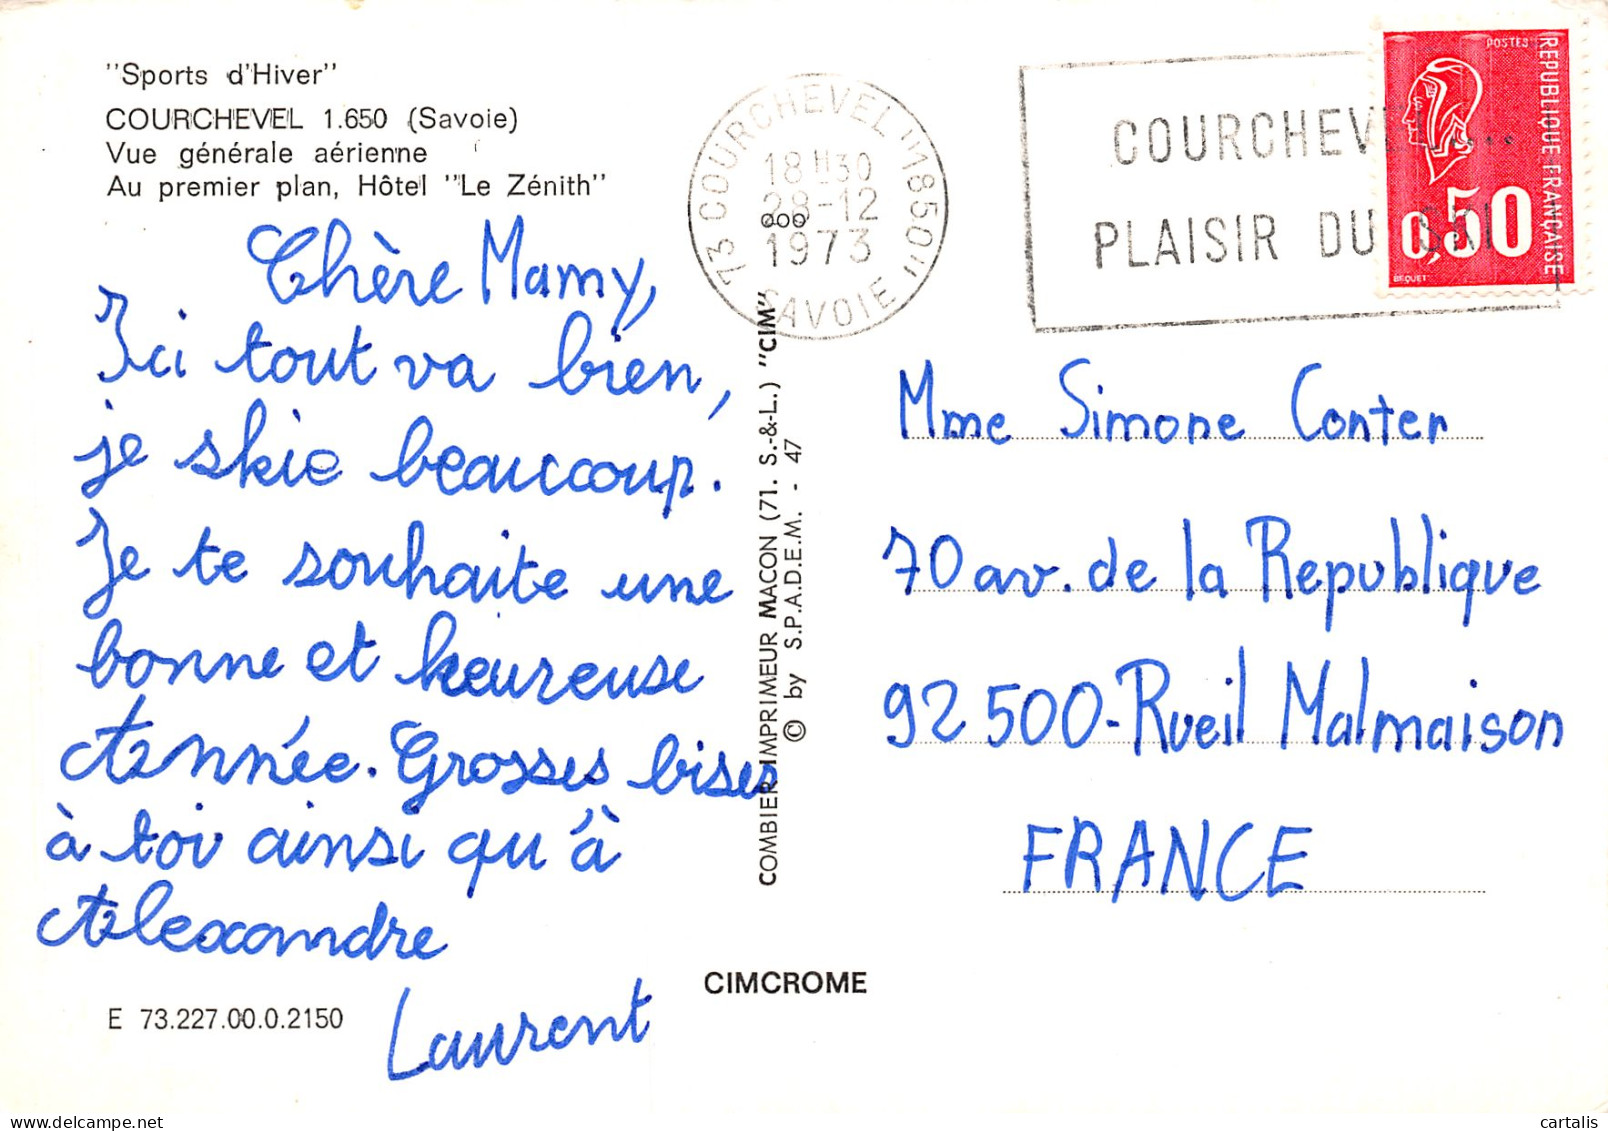 "Sports d'Hiver"
COURCHEVEL 1.650 (Savoie)
Vue générale aérienne
Au premier plan, Hôtel "Le Zénith"
Chère Mamy,
Ici tout va bien,
je skie beaucoup.
Je te souhaite une
bonne et heureuse
Année. Grosses bises
à toi ainsi qu'à
Alexandre
Laurent
E 73.227.00.0.2150
COMBIER IMPRIMEUR MACON (71. S.-&-L.) "CIM"
© by S.P.A.D.E.M. - 47
CIMCROME
73 COURCHEVEL "1850"
18H30
28-12
1973
SAVOIE
COURCHEVEL...
PLAISIR DU SKI
POSTES
REPUBLIQUE FRANÇAISE
0,50
BEQUET
Mme Simone Conter
70 av. de la Republique
92500-Rueil Malmaison
FRANCE
cartalis